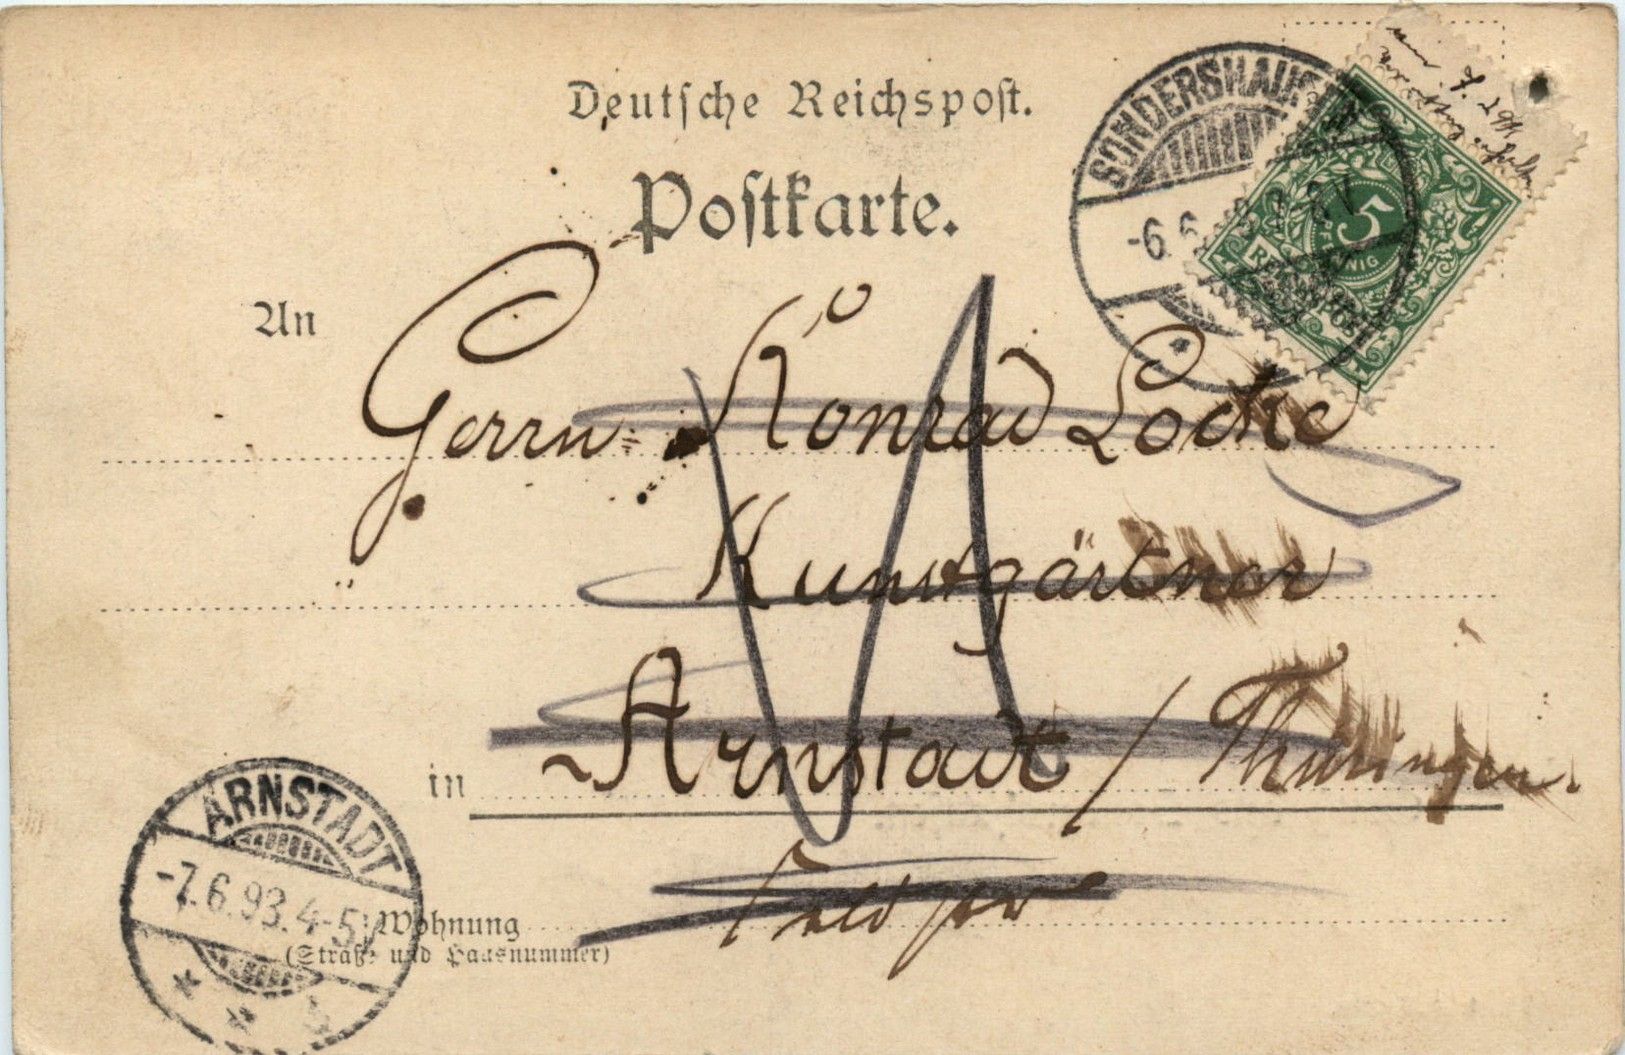 Deutsche Reichspost.
Postkarte.
SONDERSHAUSEN
-6.6.
5
REICHSPOST
An
Herrn Konrad Locke
Kunstgärtner
in Arnstadt / Thüringen.
ARNSTADT
-7.6.93.4-5N
Wohnung
(Straße und Hausnummer)